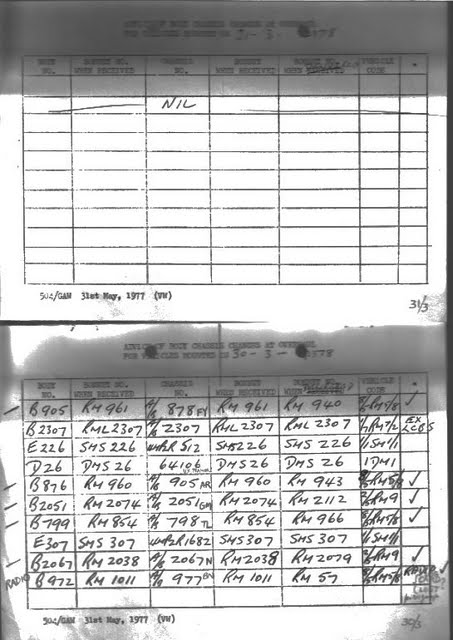 ADVICE OF BODY CHASSIS CHANGES AT OVERHAUL
FOR VEHICLES MOUNTED ON 31-3-1978
BODY NO. BONNET NO. WHEN RECEIVED CHASSIS NO. BONNET WHEN RECEIVED BONNET NO. WHEN VEHICLE CODE *
NIL
50c/GAM 31st May, 1977 (VW)
31/3
ADVICE OF BODY CHASSIS CHANGES AT OVERHAUL
FOR VEHICLES MOUNTED ON 30-3-1978
BODY NO. BONNET NO. WHEN RECEIVED CHASSIS NO. BONNET WHEN RECEIVED BONNET NO. WHEN VEHICLE CODE *
B905 RM 961 878 FY RM 961 RM 940 5/8 ✓
B2307 RML 2307 2307 RML 2307 RML 2307 EX LCBS
E226 SMS 226 512 SMS226 SMS 226
D26 DMS 26 64106 DMS 26 DMS 26 1DM1
B876 RM 960 905 AR RM 960 RM 943 ✓
B2051 RM 2074 2051 GM RM 2074 RM 2112 ✓
B799 RM 854 798 TL RM 854 RM 966 ✓
E307 SMS 307 1682 SMS307 SMS 307
B2067 RM 2038 2067 N RM 2038 RM 2079 ✓
RADIO B972 RM 1011 977 BN RM 1011 RM 57 ✓
50c/GAM 31st May, 1977 (VW)
30/3